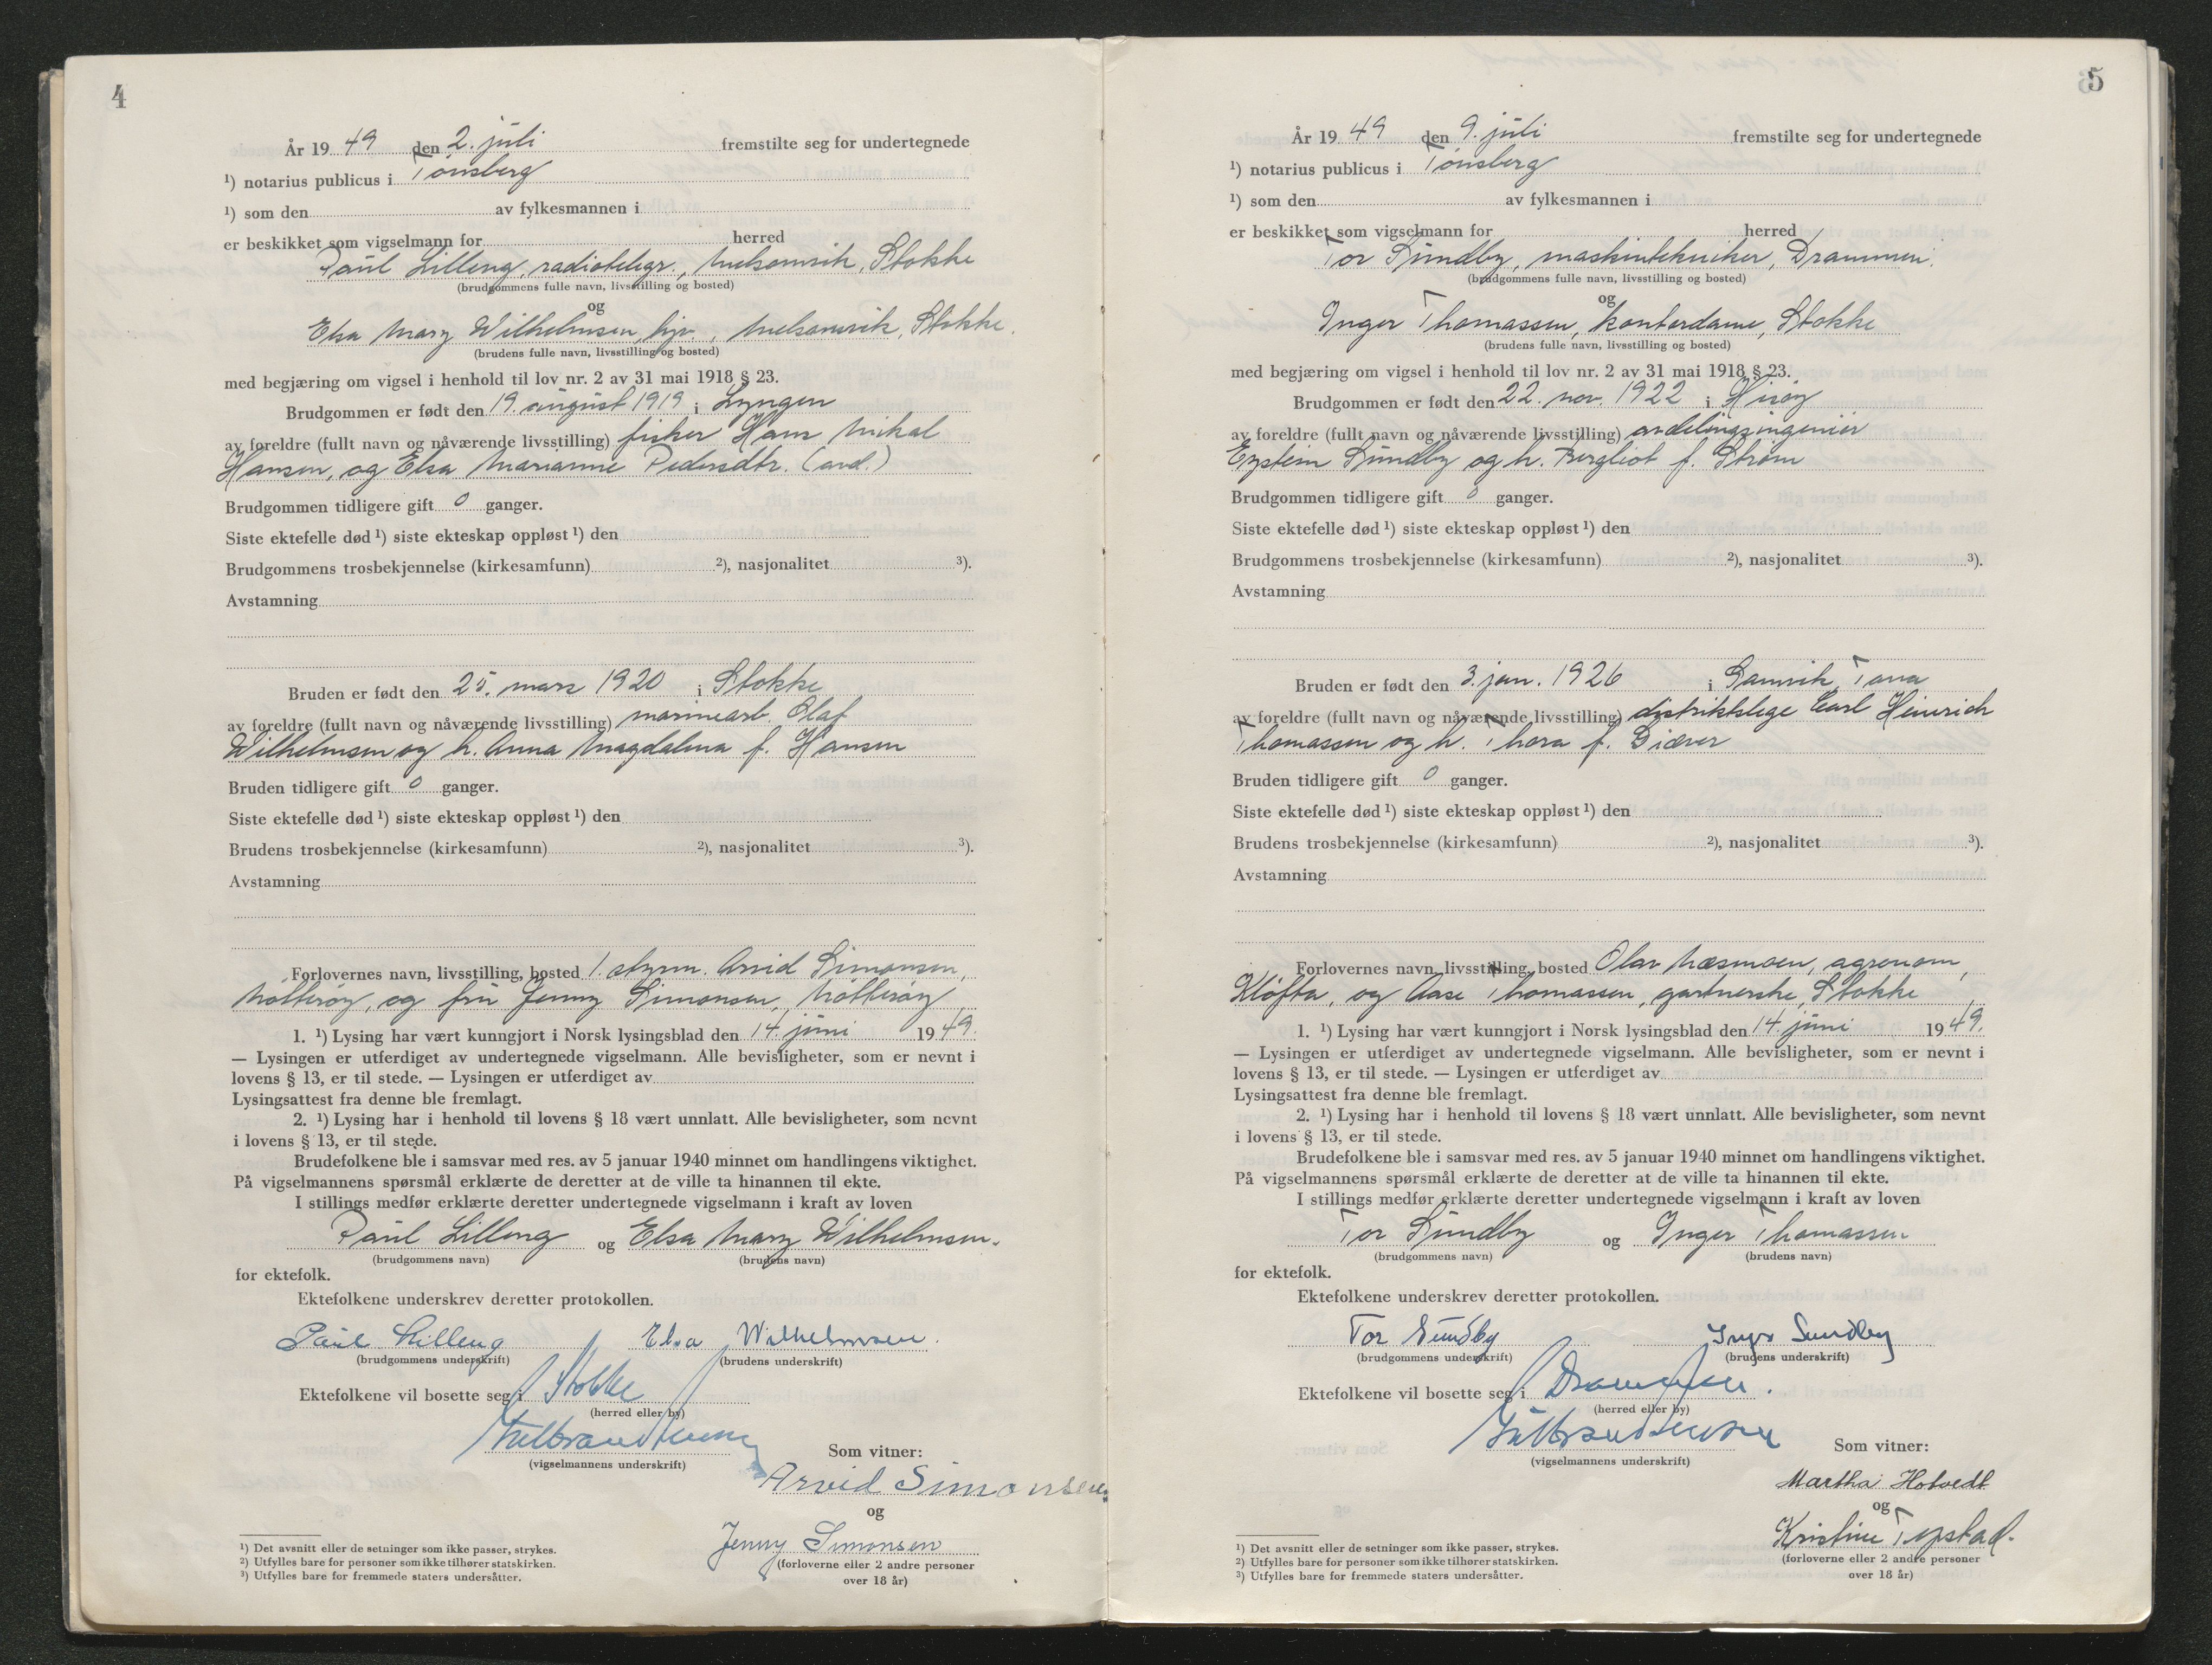 4
År 19 49 den 2. juli fremstilte seg for undertegnede
¹) notarius publicus i Tønsberg
¹) som den av fylkesmannen i
er beskikket som vigselmann for herred
Paul Lilleng, radiotelegr., Melsomvik, Stokke
(brudgommens fulle navn, livsstilling og bosted)
og
Elsa Mary Wilhelmsen, hjv., Melsomvik, Stokke.
(brudens fulle navn, livsstilling og bosted)
med begjæring om vigsel i henhold til lov nr. 2 av 31 mai 1918 § 23.
Brudgommen er født den 19. august 1919 i Lyngen
av foreldre (fullt navn og nåværende livsstilling) fisker Hans Mikal
Hansen, og Elsa Marianne Pedersdtr. (avd.)
Brudgommen tidligere gift 0 ganger.
Siste ektefelle død ¹) siste ekteskap oppløst ¹) den
Brudgommens trosbekjennelse (kirkesamfunn) ²), nasjonalitet ³).
Avstamning
Bruden er født den 25. mars 1920 i Stokke
av foreldre (fullt navn og nåværende livsstilling) marinearb. Olaf
Wilhelmsen og h. Anna Magdalena f. Hansen
Bruden tidligere gift 0 ganger.
Siste ektefelle død ¹) siste ekteskap oppløst ¹) den
Brudens trosbekjennelse (kirkesamfunn) ²), nasjonalitet ³).
Avstamning
Forlovernes navn, livsstilling, bosted 1. styrm. Arvid Simonsen,
Nøtterøy, og fru Jenny Simonsen, Nøtterøy
1. ¹) Lysing har vært kunngjort i Norsk lysingsblad den 14. juni 19 49.
— Lysingen er utferdiget av undertegnede vigselmann. Alle bevisligheter, som er nevnt i
lovens § 13, er til stede. — Lysingen er utferdiget av
Lysingsattest fra denne ble fremlagt.
2. ¹) Lysing har i henhold til lovens § 18 vært unnlatt. Alle bevisligheter, som nevnt
i lovens § 13, er til stede.
Brudefolkene ble i samsvar med res. av 5 januar 1940 minnet om handlingens viktighet.
På vigselmannens spørsmål erklærte de deretter at de ville ta hinannen til ekte.
I stillings medfør erklærte deretter undertegnede vigselmann i kraft av loven
Paul Lilleng og Elsa Mary Wilhelmsen.
(brudgommens navn) (brudens navn)
for ektefolk.
Ektefolkene underskrev deretter protokollen.
Paul Lilleng Elsa Wilhelmsen.
(brudgommens underskrift) (brudens underskrift)
Ektefolkene vil bosette seg i Stokke
(herred eller by)
(vigselmannens underskrift)
Som vitner:
Arvid Simonsen
og
Jenny Simonsen
(forloverne eller 2 andre personer
over 18 år)
¹) Det avsnitt eller de setninger som ikke passer, strykes.
²) Utfylles bare for personer som ikke tilhører statskirken.
³) Utfylles bare for fremmede staters undersåtter.
5
År 19 49 den 9. juli fremstilte seg for undertegnede
¹) notarius publicus i Tønsberg
¹) som den av fylkesmannen i
er beskikket som vigselmann for herred
Tor Sundby, maskintekniker, Drammen.
(brudgommens fulle navn, livsstilling og bosted)
og
Inger Thomassen, kontordame, Stokke
(brudens fulle navn, livsstilling og bosted)
med begjæring om vigsel i henhold til lov nr. 2 av 31 mai 1918 § 23.
Brudgommen er født den 22. nov. 1922 i Hisøy
av foreldre (fullt navn og nåværende livsstilling) avdelingsingeniør
Eystein Sundby og h. Bergliot f. Strøm
Brudgommen tidligere gift 0 ganger.
Siste ektefelle død ¹) siste ekteskap oppløst ¹) den
Brudgommens trosbekjennelse (kirkesamfunn) ²), nasjonalitet ³).
Avstamning
Bruden er født den 3. jan. 1926 i Tana
av foreldre (fullt navn og nåværende livsstilling) distriktslege Carl Heinrich
Thomassen og h. Thora f. Giæver
Bruden tidligere gift 0 ganger.
Siste ektefelle død ¹) siste ekteskap oppløst ¹) den
Brudens trosbekjennelse (kirkesamfunn) ²), nasjonalitet ³).
Avstamning
Forlovernes navn, livsstilling, bosted Olav Næsmoen, agronom,
Kløfta, og Aase Thomassen, gartnerske, Stokke
1. ¹) Lysing har vært kunngjort i Norsk lysingsblad den 14. juni 19 49.
— Lysingen er utferdiget av undertegnede vigselmann. Alle bevisligheter, som er nevnt i
lovens § 13, er til stede. — Lysingen er utferdiget av
Lysingsattest fra denne ble fremlagt.
2. ¹) Lysing har i henhold til lovens § 18 vært unnlatt. Alle bevisligheter, som nevnt
i lovens § 13, er til stede.
Brudefolkene ble i samsvar med res. av 5 januar 1940 minnet om handlingens viktighet.
På vigselmannens spørsmål erklærte de deretter at de ville ta hinannen til ekte.
I stillings medfør erklærte deretter undertegnede vigselmann i kraft av loven
Tor Sundby og Inger Thomassen
(brudgommens navn) (brudens navn)
for ektefolk.
Ektefolkene underskrev deretter protokollen.
Tor Sundby Inger Sundby
(brudgommens underskrift) (brudens underskrift)
Ektefolkene vil bosette seg i Drammen.
(herred eller by)
(vigselmannens underskrift)
Som vitner:
Martha Holvedt
og
Kristine Tepstad.
(forloverne eller 2 andre personer
over 18 år)
¹) Det avsnitt eller de setninger som ikke passer, strykes.
²) Utfylles bare for personer som ikke tilhører statskirken.
³) Utfylles bare for fremmede staters undersåtter.